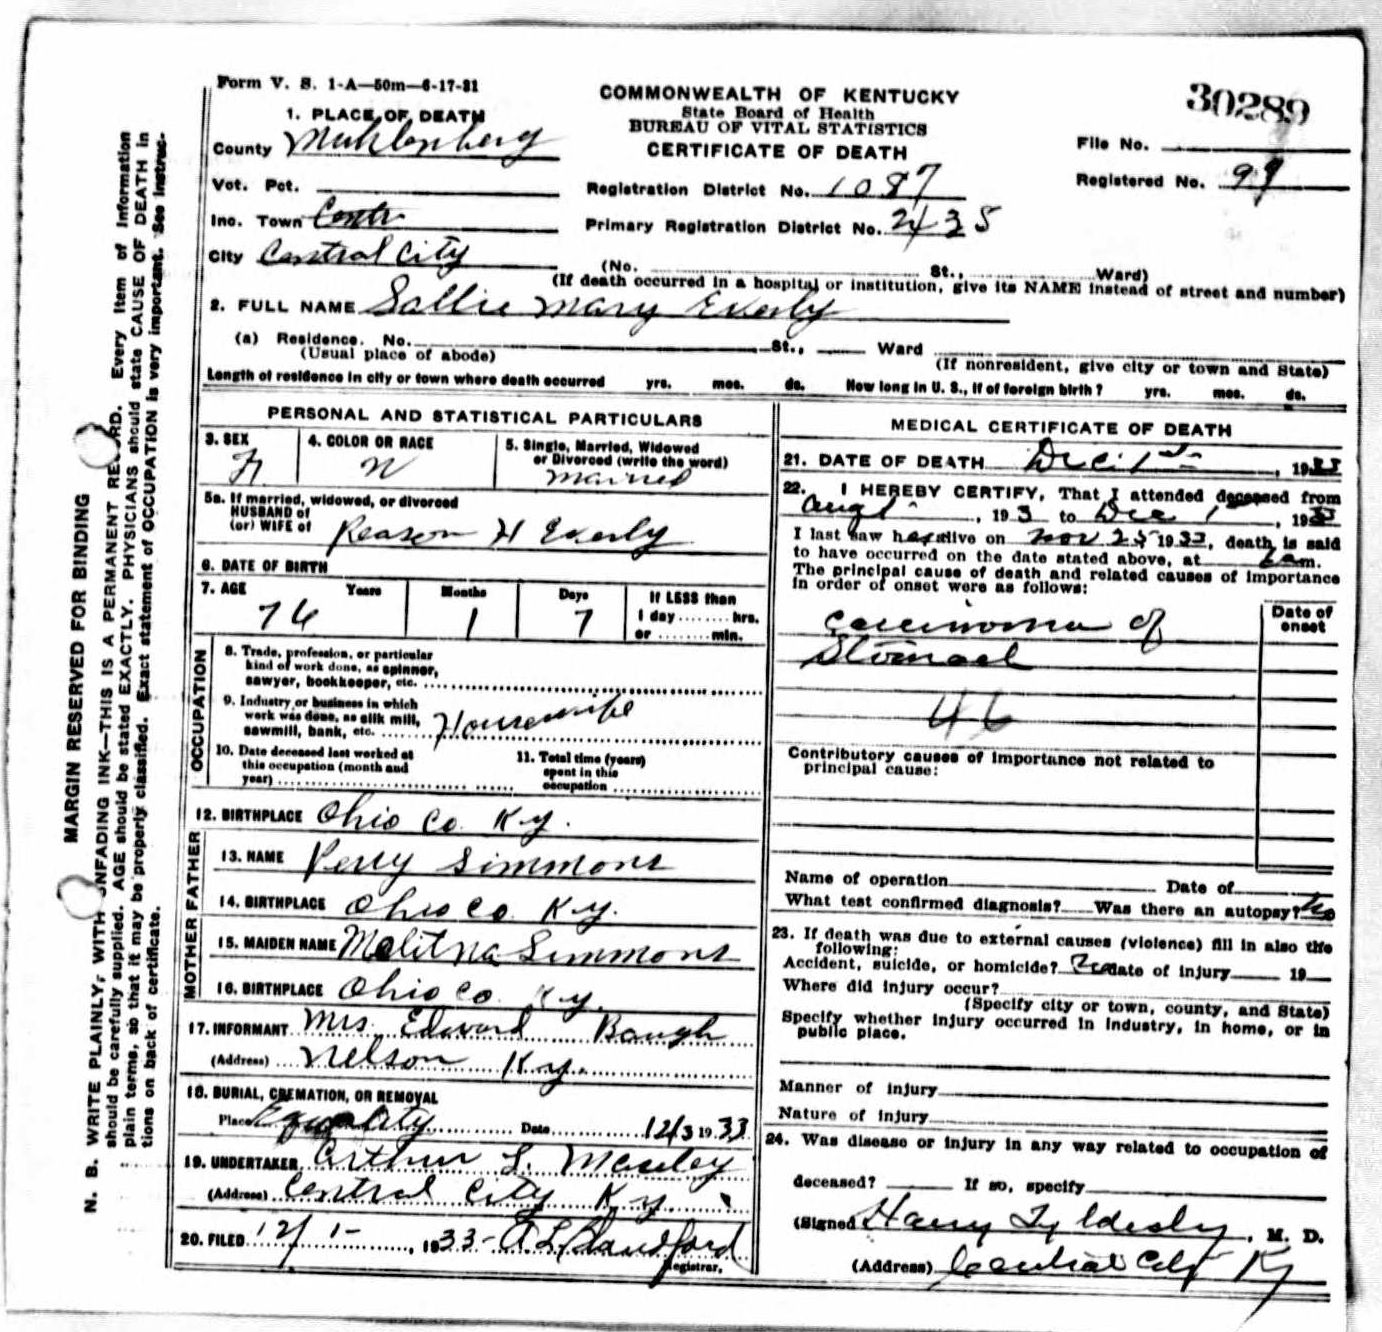 Form V. S. 1-A—50m—6-17-31
COMMONWEALTH OF KENTUCKY
State Board of Health
BUREAU OF VITAL STATISTICS
CERTIFICATE OF DEATH
30289
File No.
Registered No. 99
1. PLACE OF DEATH
County Muhlenberg
Vot. Pct.
Inc. Town Centr
City Central City
Registration District No. 1087
Primary Registration District No. 2435
(No. St., Ward)
(If death occurred in a hospital or institution, give its NAME instead of street and number)
2. FULL NAME Sallie Mary Everly
(a) Residence. No. St., Ward
(Usual place of abode)
(If nonresident, give city or town and State)
Length of residence in city or town where death occurred yrs. mos. ds. How long in U. S., if of foreign birth? yrs. mos. ds.
PERSONAL AND STATISTICAL PARTICULARS
3. SEX
F
4. COLOR OR RACE
W
5. Single, Married, Widowed
or Divorced (write the word)
Married
5a. If married, widowed, or divorced
HUSBAND of
(or) WIFE of Reason H Everly
6. DATE OF BIRTH
7. AGE Years Months Days If LESS than
1 day ........ hrs.
or ........ min.
76 1 7
OCCUPATION
8. Trade, profession, or particular
kind of work done, as spinner,
sawyer, bookkeeper, etc.
9. Industry or business in which
work was done, as silk mill,
sawmill, bank, etc. Housewife
10. Date deceased last worked at
this occupation (month and
year)
11. Total time (years)
spent in this
occupation
12. BIRTHPLACE Ohio Co. Ky.
FATHER
13. NAME Perry Simmons
14. BIRTHPLACE Ohio Co. Ky.
MOTHER
15. MAIDEN NAME Malitna Simmons
16. BIRTHPLACE Ohio Co Ky.
17. INFORMANT Mrs. Edward Baugh
(Address) Nelson Ky.
18. BURIAL, CREMATION, OR REMOVAL
Place Equality Date 12/3 1933
19. UNDERTAKER Arthur L. Mauley
(Address) Central City Ky
20. FILED 12/1-, 1933- A L Blandford
Registrar.
MEDICAL CERTIFICATE OF DEATH
21. DATE OF DEATH Dec. 1st, 1933
22. I HEREBY CERTIFY, That I attended deceased from
Aug 1, 193 to Dec 1, 193
I last saw her alive on Nov 25 1933, death is said
to have occurred on the date stated above, at m.
The principal cause of death and related causes of importance
in order of onset were as follows:
Date of
onset
Carcinoma of
Stomach
46
Contributory causes of importance not related to
principal cause:
Name of operation Date of
What test confirmed diagnosis? Was there an autopsy? No
23. If death was due to external causes (violence) fill in also the
following:
Accident, suicide, or homicide? No Date of injury 19
Where did injury occur?
(Specify city or town, county, and State)
Specify whether injury occurred in industry, in home, or in
public place.
Manner of injury
Nature of injury
24. Was disease or injury in any way related to occupation of
deceased? If so, specify
(Signed Harry Tyldesly, M. D.
(Address) Central City Ky
MARGIN RESERVED FOR BINDING
N. B. WRITE PLAINLY, WITH UNFADING INK—THIS IS A PERMANENT RECORD. Every item of information
should be carefully supplied. AGE should be stated EXACTLY. PHYSICIANS should state CAUSE OF DEATH in
plain terms, so that it may be properly classified. Exact statement of OCCUPATION is very important. See instruc-
tions on back of certificate.